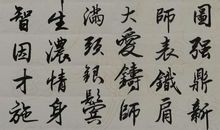 圖强鼎新
師表鐵肩
大愛鑄師
滿頭銀鬢
生濃情身
智因才施